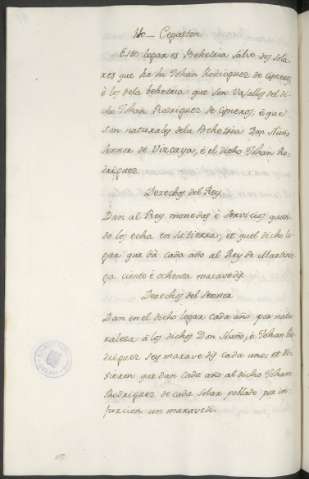 Este logar es Behetria salvo dos sola-
res que ha hi Johan Rodriguez de Cisneros,
è los dela behetria que son Vasallos del di-
cho Johan Rodriguez de Cisneros, è que
son naturales dela Behetria Don Nuño
Sennor de Vizcaya, è el dicho Johan Ro-
driguez.
Derechos del Rey
Dan al Rey monedas è servicios quan-
do los echa en su tierra, et quel dicho lo-
gar que dà cada año al Rey de Martinie-
ga ciento è ochenta maravedis
Derechos del Sennor
Dan en el dicho logar cada año por natu-
raleza à los dichos Don Nuño, è Johan Ro-
driguez sey maravedis cada uno, et di-
xieron que dan cada año al dicho Johan
Rodriguez de cada solar poblado por in-
furcion un maravedi.